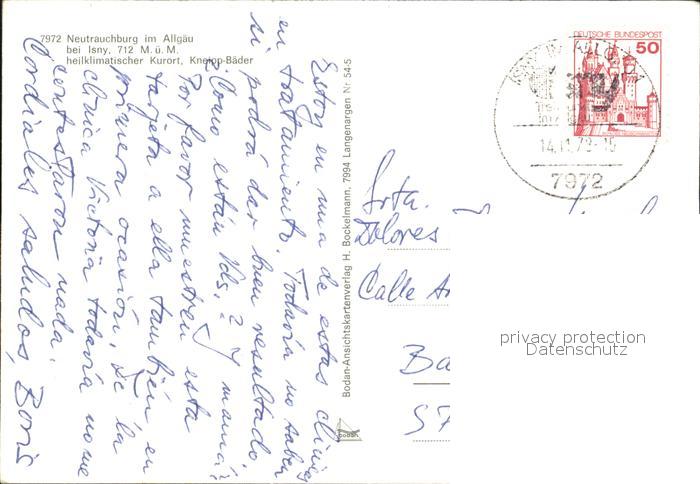 7972 Neutrauchburg im Allgäu
bei Isny, 712 M. ü. M.
heilklimatischer Kurort, Kneipp-Bäder
Estoy en una de estas clínicas
en tratamiento. Todavía no saben
si podrá dar buen resultado.
¿Cómo están Vds.? Y mamá?
Por favor muestren esta
tarjeta a ella también en
primera ocasión. De la
clínica Victoria todavía no me
contestaron nada.
Cordiales saludos, Boris
Bodan-Ansichtskartenverlag H. Bockelmann, 7994 Langenargen Nr 54/5
bodan
DEUTSCHE BUNDESPOST
50
ISNY IM ALLGÄU
14.11.79-15
7972
Srta.
Dolores
Calle
Ba
privacy protection
Datenschutz